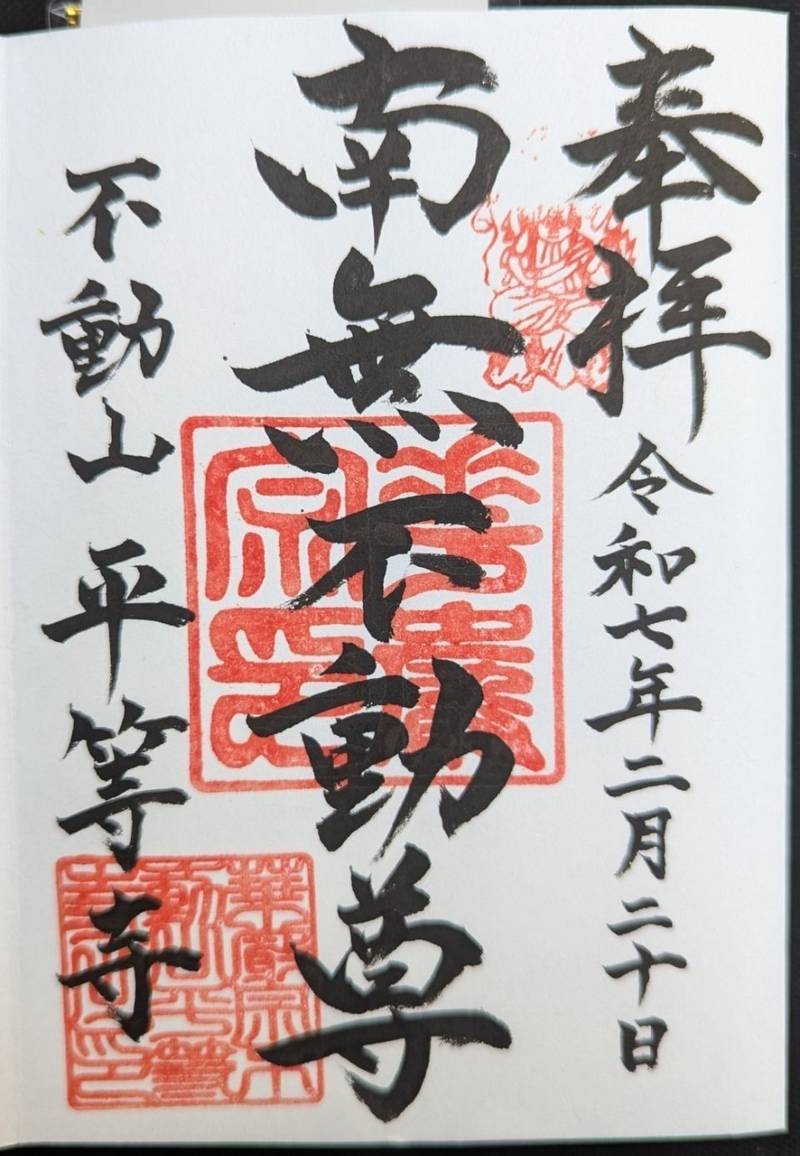 奉拝
令和七年二月二十日
南無不動尊
不動山 平等寺